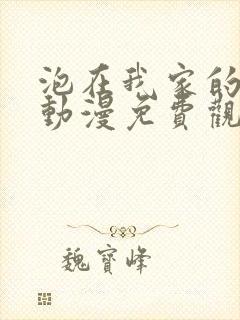 泡在我家的
動漫免費觀
魏寶峰